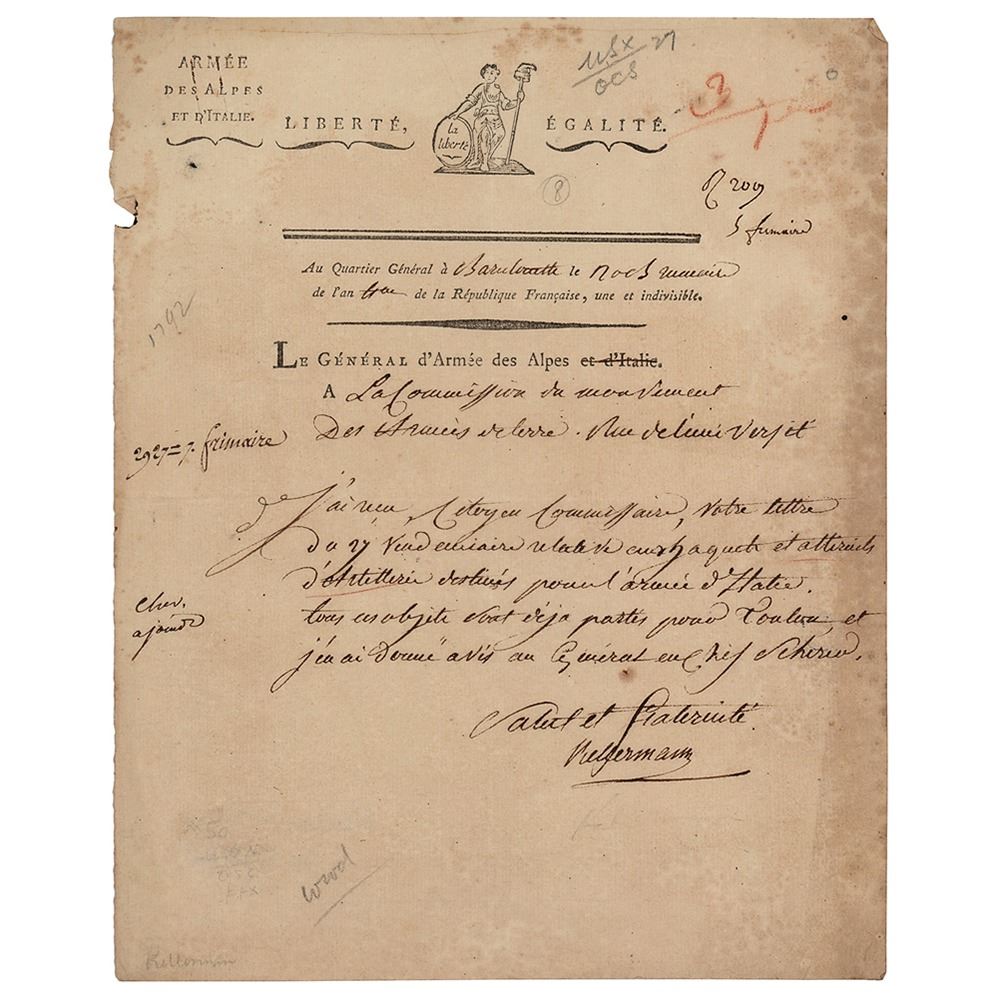 ARMÉE
DES ALPES
ET D'ITALIE.
LIBERTÉ,
la
liberté
ÉGALITÉ.
11SX 27
OCS
3
8
R 209
5 frimaire
Au Quartier Général à Barcelonette le
de l'an 4me de la République Française, une et indivisible.
1792
LE GÉNÉRAL d'Armée des Alpes et d'Italie.
A La Commission du mouvement
Des Armées de terre. Rue de l'université
2927=7. frimaire
J'ai reçu, Citoyen Commissaire, votre lettre
Du 27 Vendemiaire relative aux haquets et attirails
d'Artillerie destinés pour l'armée d'Italie.
tous ces objets sont déja partis pour Toulon, et
j'en ai Donné avis au Général en Chef Scherer.
Cher.
ajoindre
Salut et fraternité
Kellermann
wwd
Kellermann